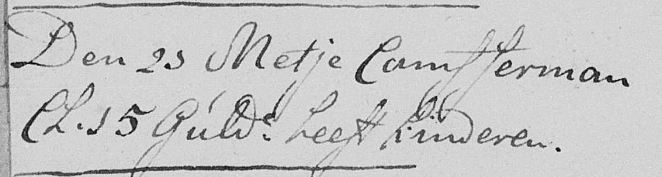 Den 23 Metje Camfferman
Cl. 15 Guld.s heeft kinderen.